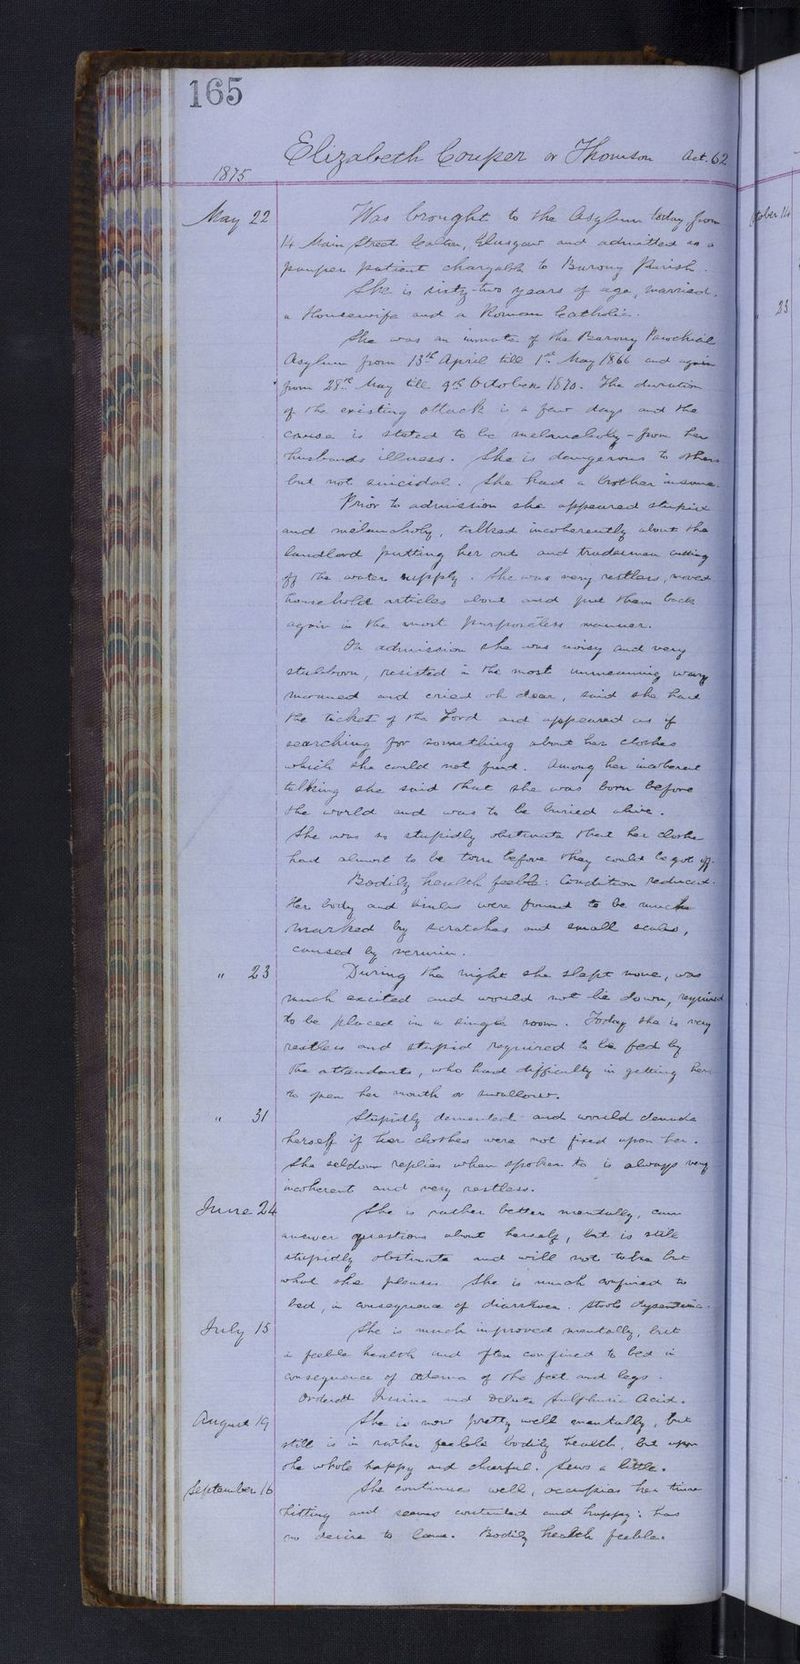 165
Elizabeth Couper or Thomson Aet. 62
1875
May 22 Was brought to the Asylum today from
14 Main Street Calton, Glasgow and admitted as a
pauper patient chargable to Barony Parish.
She is sixty-two years of age, married,
a Housewife and a Roman Catholic.
She was an inmate of the Barony Parochial
Asylum from 13th April till 1st May 1866 and again
from 28th May till 9th October 1870. The duration
of the existing attack is a few days and the
cause is stated to be melancholy - from her
husbands illness. She is dangerous to others
but not suicidal. She had a brother insane.
Prior to admission she appeared stupid
and melancholy, talked incoherently about the
landlord putting her out and tradesmen cutting
off the water supply. She was very restless, moved
household articles about and put them back
again in the most purposeless manner.
On admission she was noisy and very
stubborn, resisted in the most unmeaning way
moaned and cried oh dear, said she had
the ticket of the Lord and appeared as if
searching for something about her clothes
which she could not find. Among her incoherent
talking she said that she was born before
the world and was to be buried alive.
She was so stupidly obstinate that her clothes
had almost to be torn before they could be got off.
Bodily health feeble: Condition reduced.
Her body and limbs were found to be much
marked by scratches and small scabs,
caused by vermin.
" 23 During the night she slept none, was
much excited and would not lie down, required
to be placed in a single room. Today she is very
restless and stupid required to be fed by
the attendants, who had difficulty in getting her
to open her mouth or swallow.
" 31 Stupidly demented and would denude
herself if her clothes were not fixed upon her.
She seldom replies when spoken to is always very
incoherent and very restless.
June 24 She is rather better mentally, can
answer questions about herself, but is still
stupidly obstinate and will not take but
what she pleases. She is much confined to
bed, in consequence of diarrhoea. Stools dysenteric.
July 15 She is much improved mentally, but
in feeble health and often confined to bed in
consequence of œdema of the feet and legs.
Ordered and Dilute Sulphuric Acid.
August 19 She is now pretty well mentally, but
still is in rather feeble bodily health, but upon
the whole happy and cheerful. Sews a little.
September 16 She continues well, occupies her time
knitting and seems contented and happy: has
no desire to leave. Bodily health feeble.
14
" 23